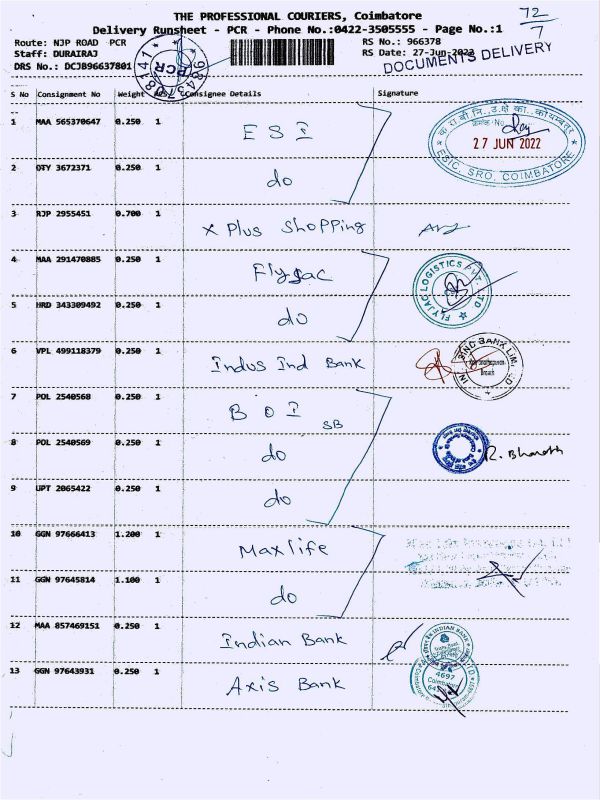 THE PROFESSIONAL COURIERS, Coimbatore
72
7
Delivery Runsheet - PCR - Phone No.:0422-3505555 - Page No.:1
Route: NJP ROAD PCR
RS No.: 966378
Staff: DURAIRAJ
RS Date: 27-Jun-2022
DRS No.: DCJB96637801
DOCUMENTS DELIVERY
9843708141
PCR
S No Consignment No Weight PCS Consignee Details Signature
1 MAA 565370647 0.250 1 E S I
27 JUN 2022
ESIC, SRO, COIMBATORE
2 OTY 3672371 0.250 1 do
3 RJP 2955451 0.700 1 X Plus Shopping
4 MAA 291470885 0.250 1 Flyjac
FLYJAC LOGISTICS PVT. LTD
5 HRD 343309492 0.250 1 do
6 VPL 499118379 0.250 1 Indus Ind Bank
Branch
7 POL 2540568 0.250 1 B O I SB
8 POL 2540569 0.250 1 do
R. Bharath
9 UPT 2065422 0.250 1 do
10 GGN 97666413 1.200 1 Maxlife
11 GGN 97645814 1.100 1 do
12 MAA 857469151 0.250 1 Indian Bank
INDIAN BANK
13 GGN 97643931 0.250 1 Axis Bank
4697
Coimbatore